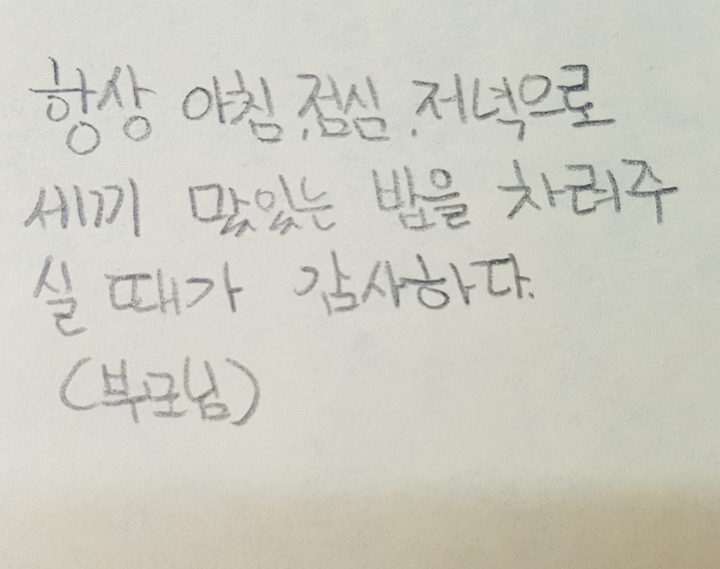 항상 아침,점심,저녁으로
세끼 맛있는 밥을 차려주
실 때가 감사하다.
(부모님)